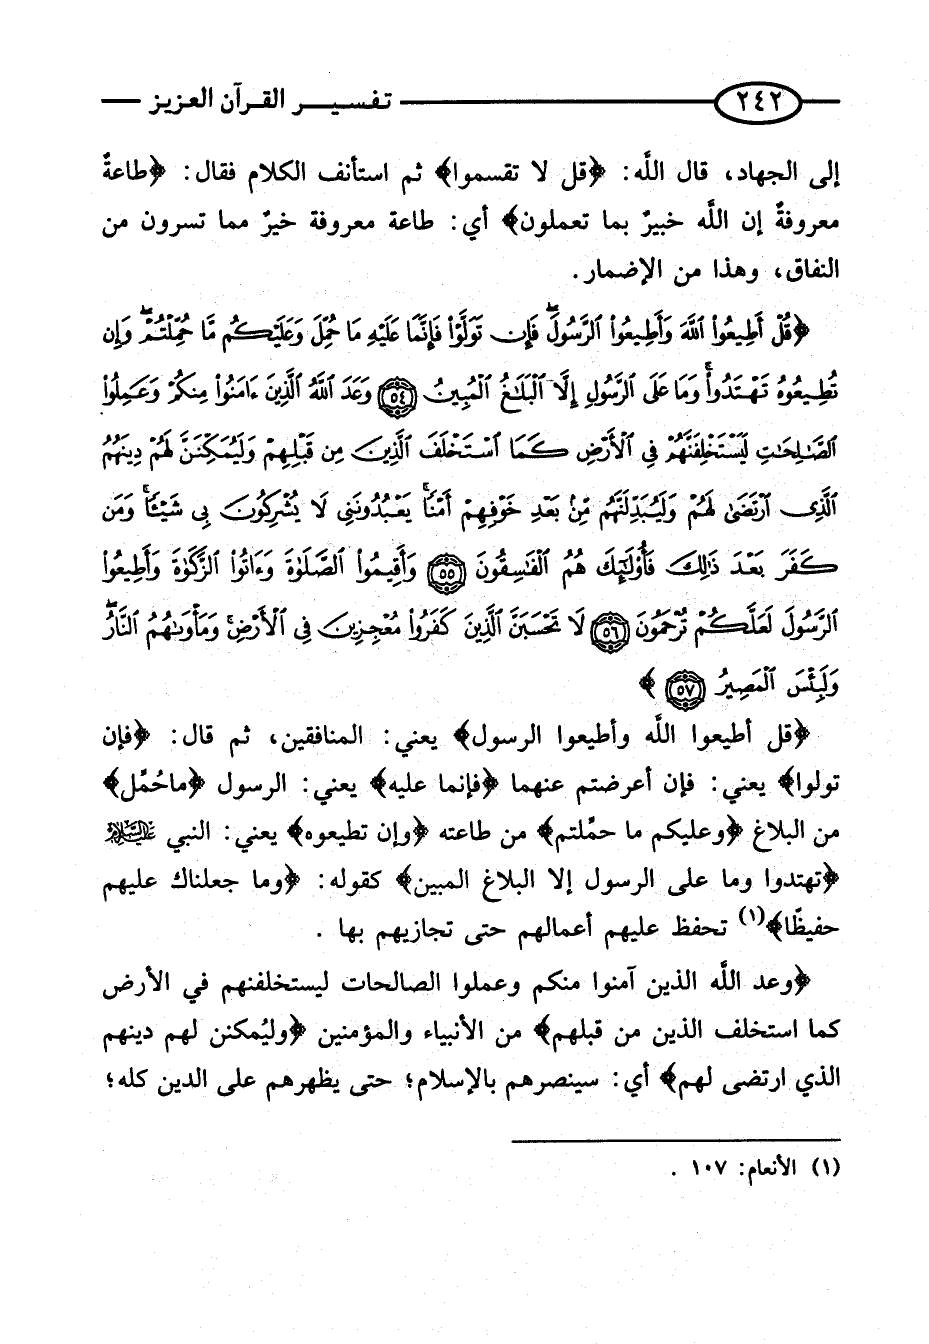 ٢٤٢ تفسير القرآن العزيز
إلى الجهاد، قال اللَّه: ﴿قل لا تقسموا﴾ ثم استأنف الكلام فقال: ﴿طاعةٌ
معروفةٌ إن اللَّه خبيرٌ بما تعملون﴾ أي: طاعة معروفة خيرٌ مما تسرون من
النفاق، وهذا من الإضمار.
﴿قُلْ أَطِيعُوا۟ ٱللَّهَ وَأَطِيعُوا۟ ٱلرَّسُولَ ۖ فَإِن تَوَلَّوْا۟ فَإِنَّمَا عَلَيْهِ مَا حُمِّلَ وَعَلَيْكُم مَّا حُمِّلْتُمْ ۖ وَإِن
تُطِيعُوهُ تَهْتَدُوا۟ ۚ وَمَا عَلَى ٱلرَّسُولِ إِلَّا ٱلْبَلَٰغُ ٱلْمُبِينُ ٥٤ وَعَدَ ٱللَّهُ ٱلَّذِينَ ءَامَنُوا۟ مِنكُمْ وَعَمِلُوا۟
ٱلصَّٰلِحَٰتِ لَيَسْتَخْلِفَنَّهُمْ فِى ٱلْأَرْضِ كَمَا ٱسْتَخْلَفَ ٱلَّذِينَ مِن قَبْلِهِمْ وَلَيُمَكِّنَنَّ لَهُمْ دِينَهُمُ
ٱلَّذِى ٱرْتَضَىٰ لَهُمْ وَلَيُبَدِّلَنَّهُم مِّنۢ بَعْدِ خَوْفِهِمْ أَمْنًا ۚ يَعْبُدُونَنِى لَا يُشْرِكُونَ بِى شَيْـًٔا ۚ وَمَن
كَفَرَ بَعْدَ ذَٰلِكَ فَأُو۟لَٰٓئِكَ هُمُ ٱلْفَٰسِقُونَ ٥٥ وَأَقِيمُوا۟ ٱلصَّلَوٰةَ وَءَاتُوا۟ ٱلزَّكَوٰةَ وَأَطِيعُوا۟
ٱلرَّسُولَ لَعَلَّكُمْ تُرْحَمُونَ ٥٦ لَا تَحْسَبَنَّ ٱلَّذِينَ كَفَرُوا۟ مُعْجِزِينَ فِى ٱلْأَرْضِ ۚ وَمَأْوَىٰهُمُ ٱلنَّارُ ۖ
وَلَبِئْسَ ٱلْمَصِيرُ ٥٧ ﴾
﴿قل أطيعوا اللَّه وأطيعوا الرسول﴾ يعني: المنافقين، ثم قال: ﴿فإن
تولوا﴾ يعني: فإن أعرضتم عنهما ﴿فإنما عليه﴾ يعني: الرسول ﴿ماحُمِّل﴾
من البلاغ ﴿وعليكم ما حمِّلتم﴾ من طاعته ﴿وإن تطيعوه﴾ يعني: النبي عليه السلام
﴿تهتدوا وما على الرسول إلا البلاغ المبين﴾ كقوله: ﴿وما جعلناك عليهم
حفيظًا﴾(١) تحفظ عليهم أعمالهم حتى تجازيهم بها .
﴿وعد اللَّه الذين آمنوا منكم وعملوا الصالحات ليستخلفنهم في الأرض
كما استخلف الذين من قبلهم﴾ من الأنبياء والمؤمنين ﴿وليُمكنن لهم دينهم
الذي ارتضى لهم﴾ أي: سينصرهم بالإسلام؛ حتى يظهرهم على الدين كله؛
(١) الأنعام: ١٠٧ .